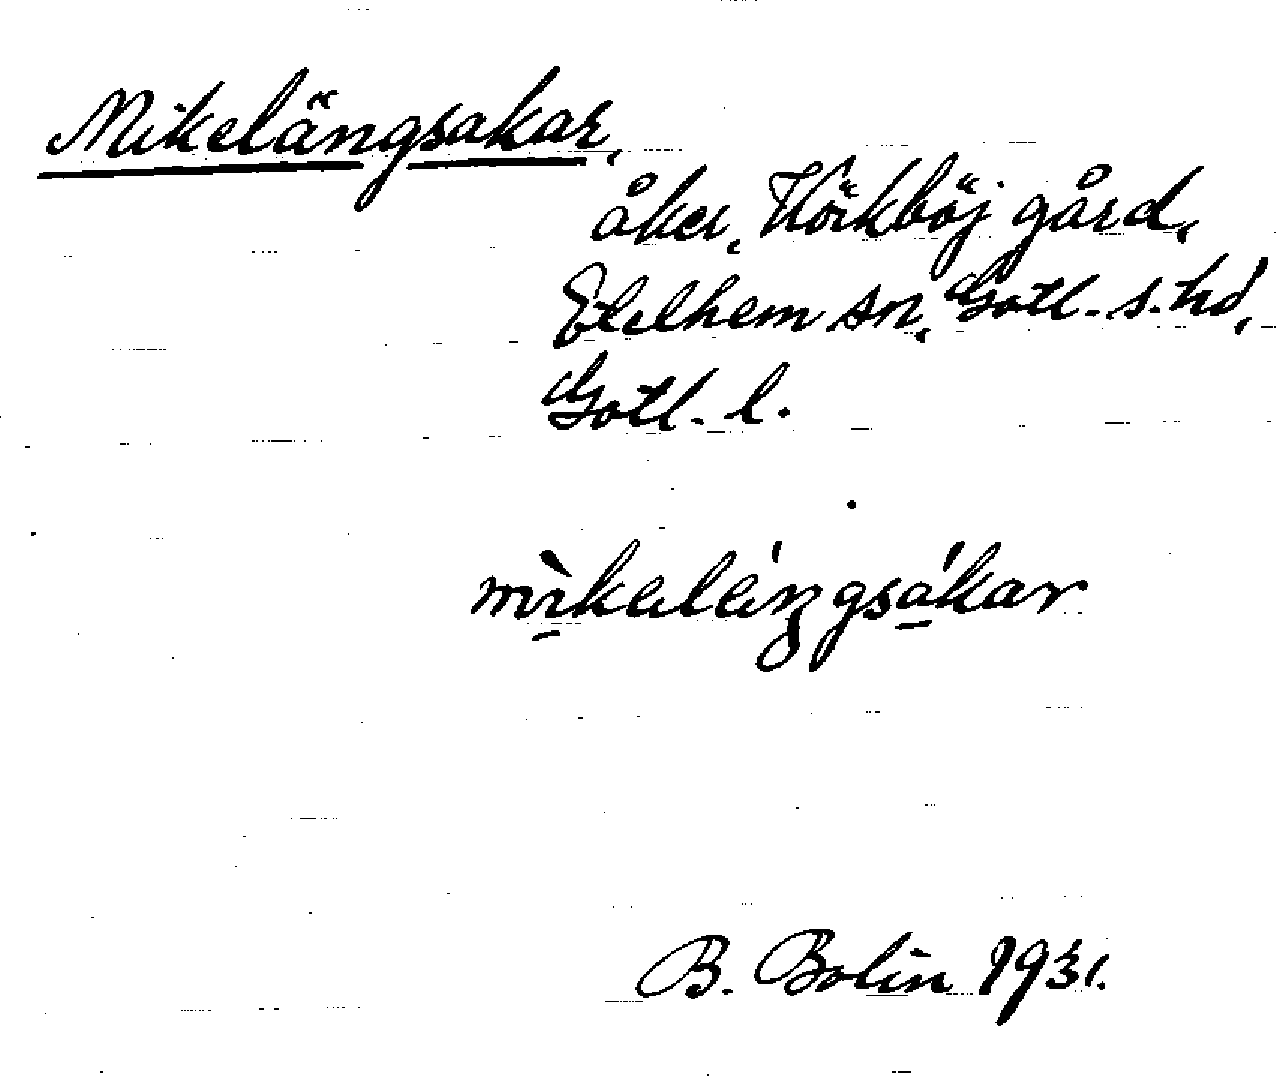 Mikelängsakar,
åker, Hörkböj gård,
Etelhem sn, Gotl. s. hd,
Gotl. l.
B. Bolin 1931.